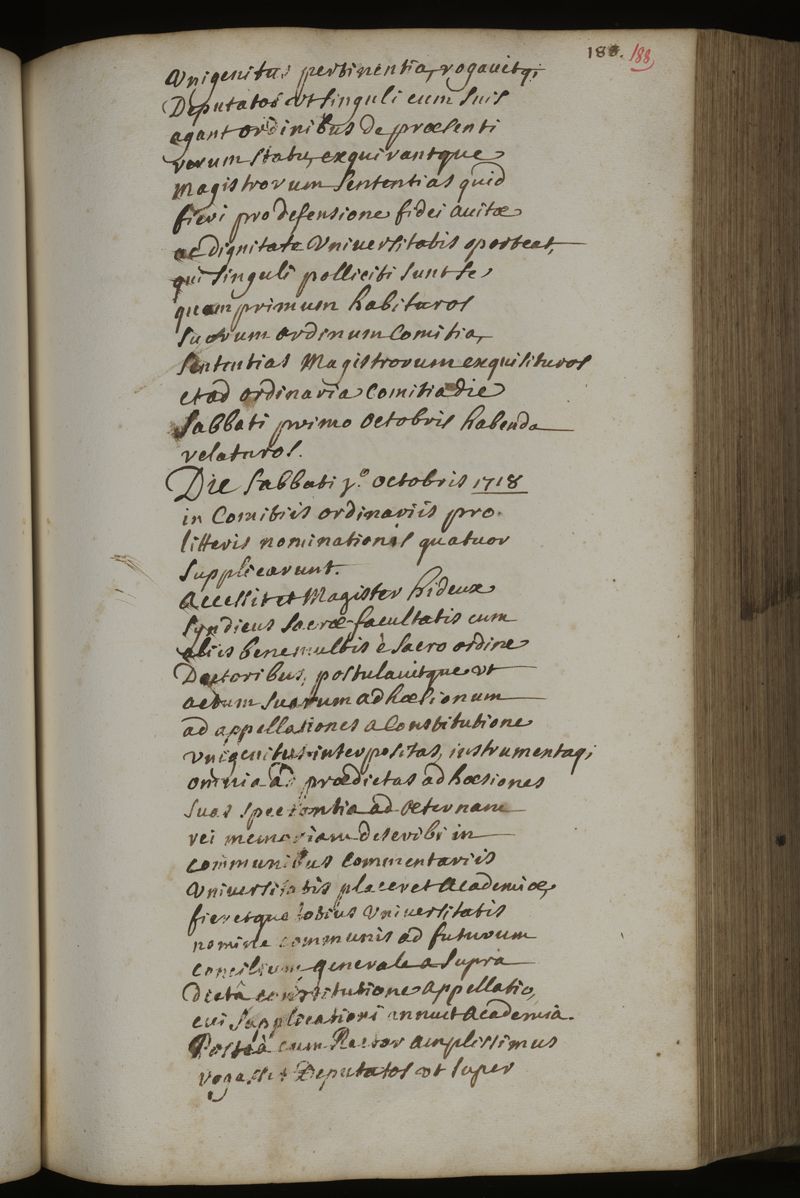 188. 188
Vnigenitus pertinentia, rogavitq;
Deputatos vt singuli cum suis
agant ordinibus de præsenti
rerum statu, exquirantque
Magistrorum sententias quid
fieri pro defensione fidei avitæ
ac dignitate Vniversitatis oporteat,
qui singuli polliciti sunt se
quam primum habituros
suorum ordinum Comitia,
sententias Magistrorum exquisituros
et ad ordinaria Comitia die
sabbati primo octobris habenda
relaturos.
Die sabbati j.o octobris 1718
in Comitiis ordinariis pro
litteris nominationis quatuor
supplicarunt.
Accessit et Magister hideux
syndicus sacræ facultatis cum
aliis bene multis è sacro ordine
Doctoribus, postulavitque vt
actum suarum adhæsionum
ad appellationes a Constitutione
vnigenitus interpositas, instrumentaq;
omnia ad prædictas adhæsiones
suas spectantia ad æternam
rei memoriam describi in
communibus Commentariis
Vniversitatis placeret Academiæ,
fieretque totius Vniversitatis
nomine communis ad futurum
concilium generale a supra
dictâ constitutione appellatio,
cui supplicationi annuit Academia.
Posteà cum Rector amplissimus
rogasset Deputatos vt super